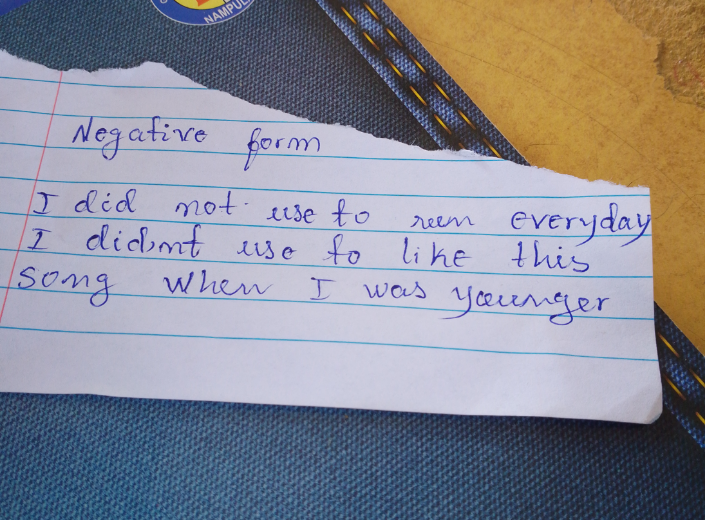 NAMPUL
Negative form
I did not use to run everyday
I didnt use to like this
song when I was younger